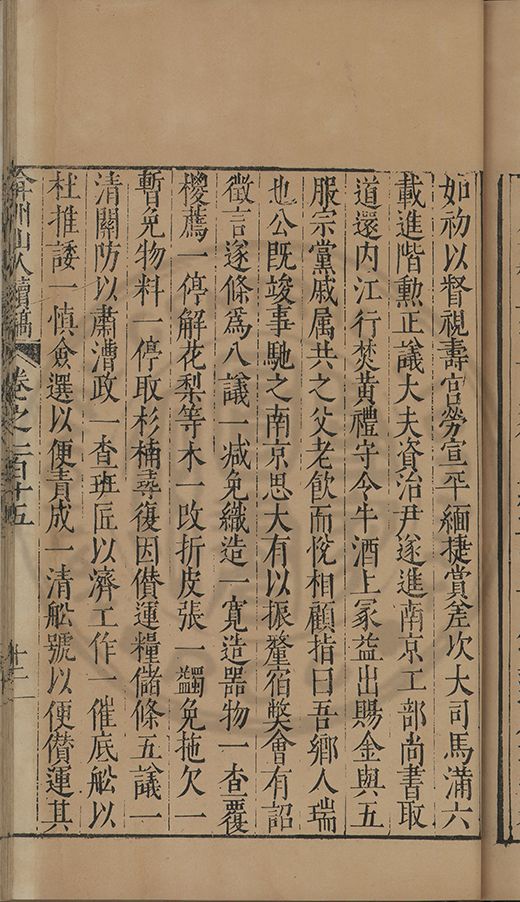 如初以督視壽宫勞宣平緬捷賞差次大司馬滿六
載進階勲正議大夫資治尹遂進南京工部尚書取
道還内江行焚黄禮守令牛酒上冢益出賜金與五
服宗黨戚属共之父老飲而悅相顧指曰吾鄉人瑞
也公既竣事馳之南京思大有以振釐宿獘會有詔
徵言遂條爲八議一减免織造一寛造器物一查覆
椶薦一停解花梨等木一改折皮張一蠲免拖欠一
暫免物料一停取杉楠尋復因儹運糧儲條五議一
清關防以肅漕政一查班匠以濟工作一催底舩以
杜推諉一慎僉選以便責成一清舩號以便儹運其
弇州山人續稿 卷之一百十五 十二